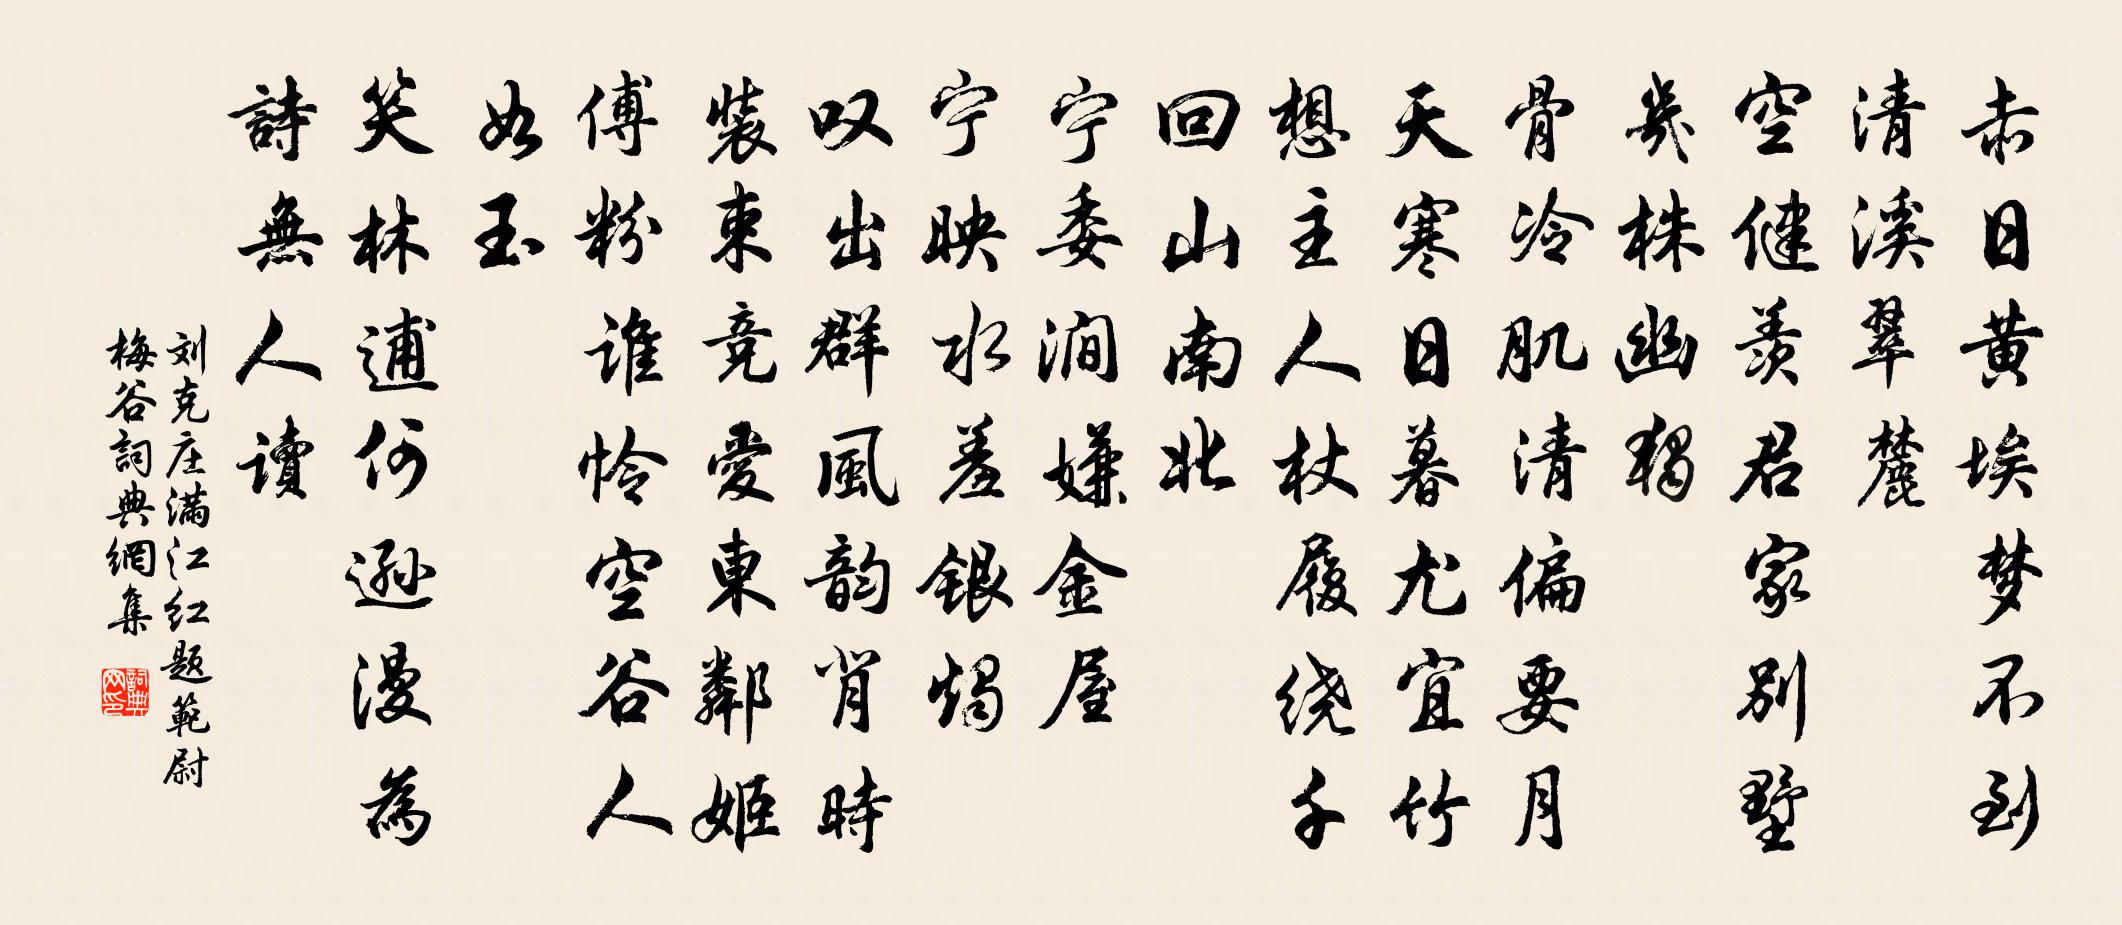 赤日黄埃梦不到
清溪翠麓
空健羡君家别墅
幾株幽獨
骨冷肌清偏要月
天寒日暮尤宜竹
想主人杖履绕千
回山南北
宁委涧嫌金屋
宁映水羞银烛
叹出群風韵背時
装束竞愛東鄰姬
傅粉谁怜空谷人
如玉
笑林逋何逊漫為
詩無人讀
刘克庄满江红题範尉
梅谷詞典網集
詞典網印